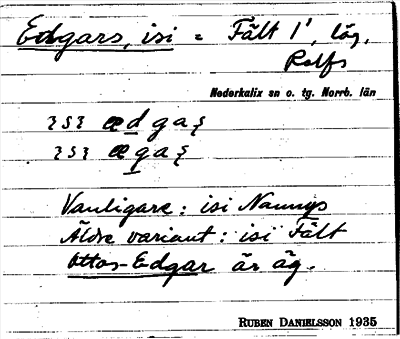 Edgars, isi = Fält 1', läg.
Rolfs
Nederkalix sn o. tg. Norrb. län
ɩsɩ ædgaʂ
ɩsɩ ægaʂ
Vanligare: isi Nannys
Äldre variant: isi Fält
Ottos-Edgar är äg.
RUBEN DANIELSSON 1935